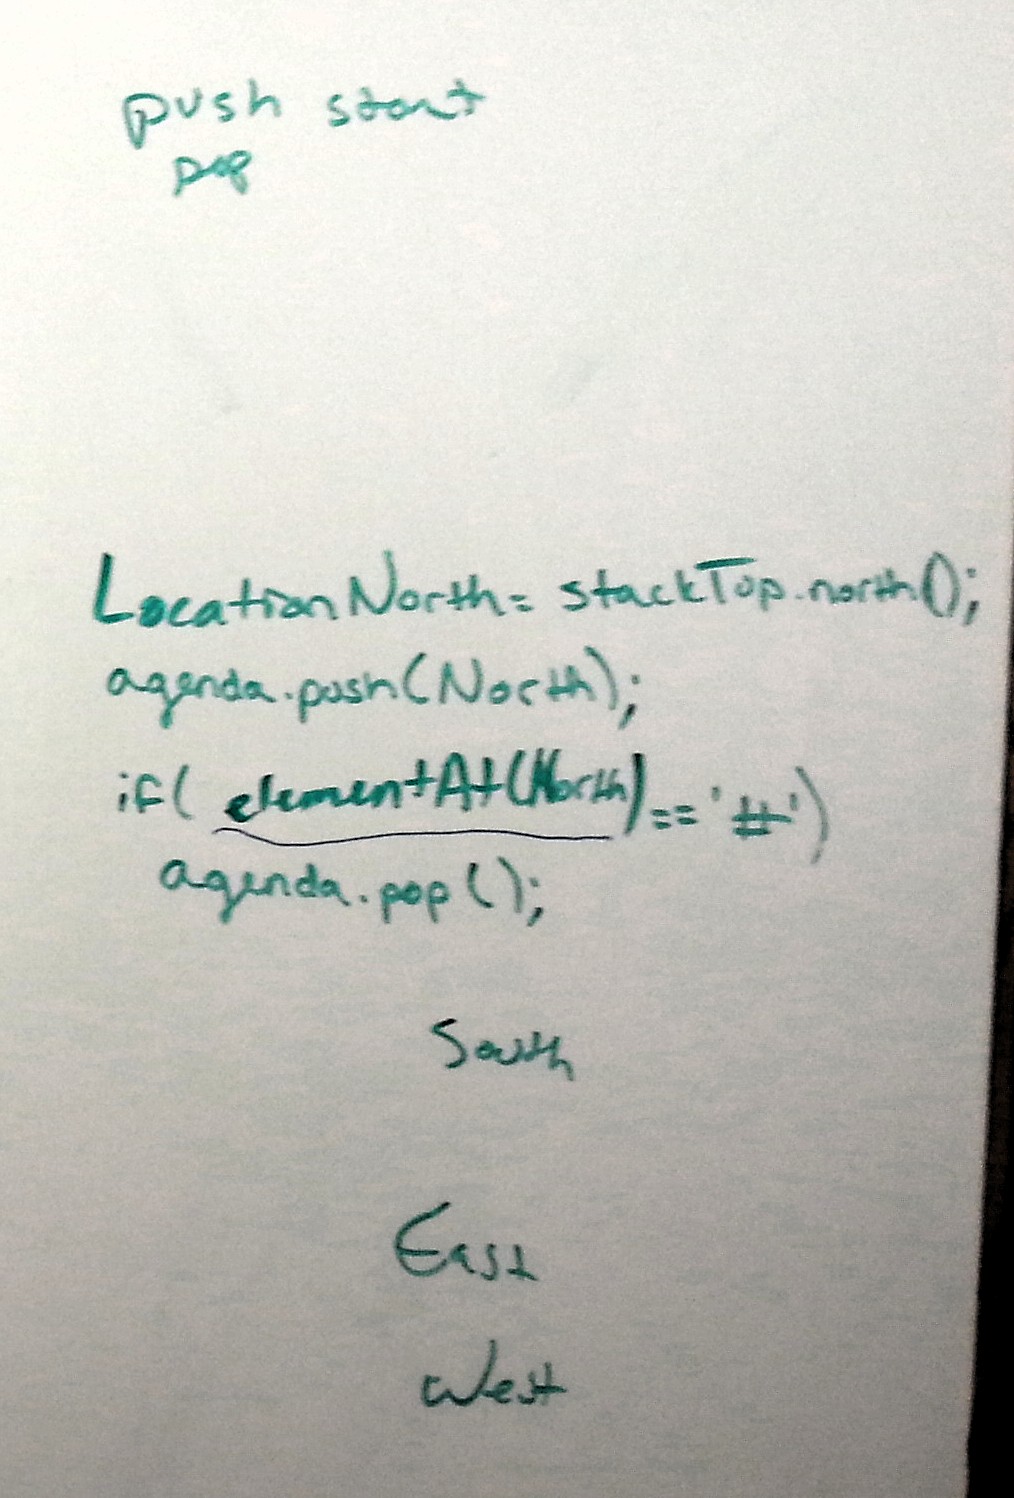 push start
pop
Location North = stackTop.north();
agenda.push(North);
if( elementAt(North) == '#')
agenda.pop();
South
East
West